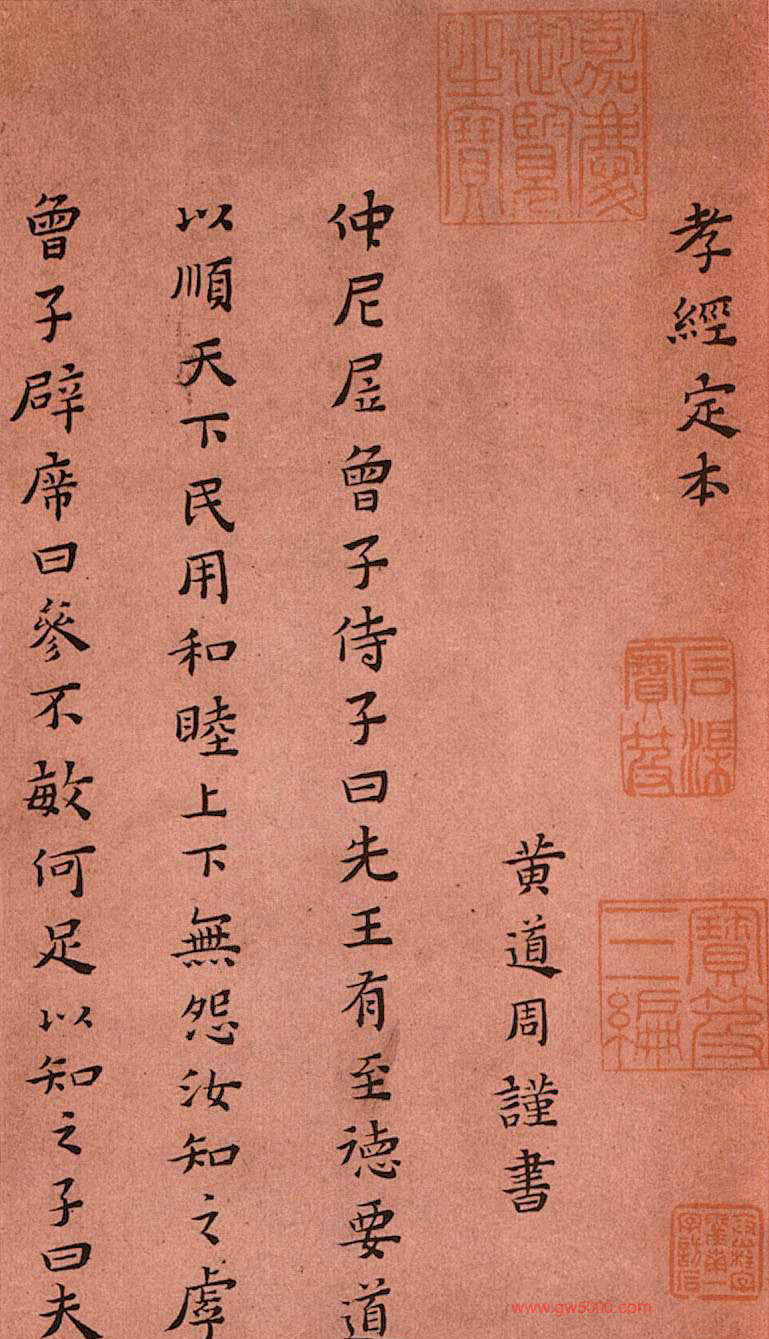 孝經定本
黄道周謹書
仲尼凥曾子侍子曰先王有至德要道
以順天下民用和睦上下無怨汝知之虖
曾子辟席曰參不敏何足以知之子曰夫
嘉慶御覽之寶
寶笈三編
www.gw5000.com